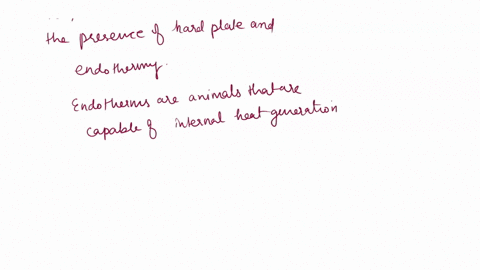 the presence of hard plate and
endothermy.
Endotherms are animals that are
capable of internal heat generation